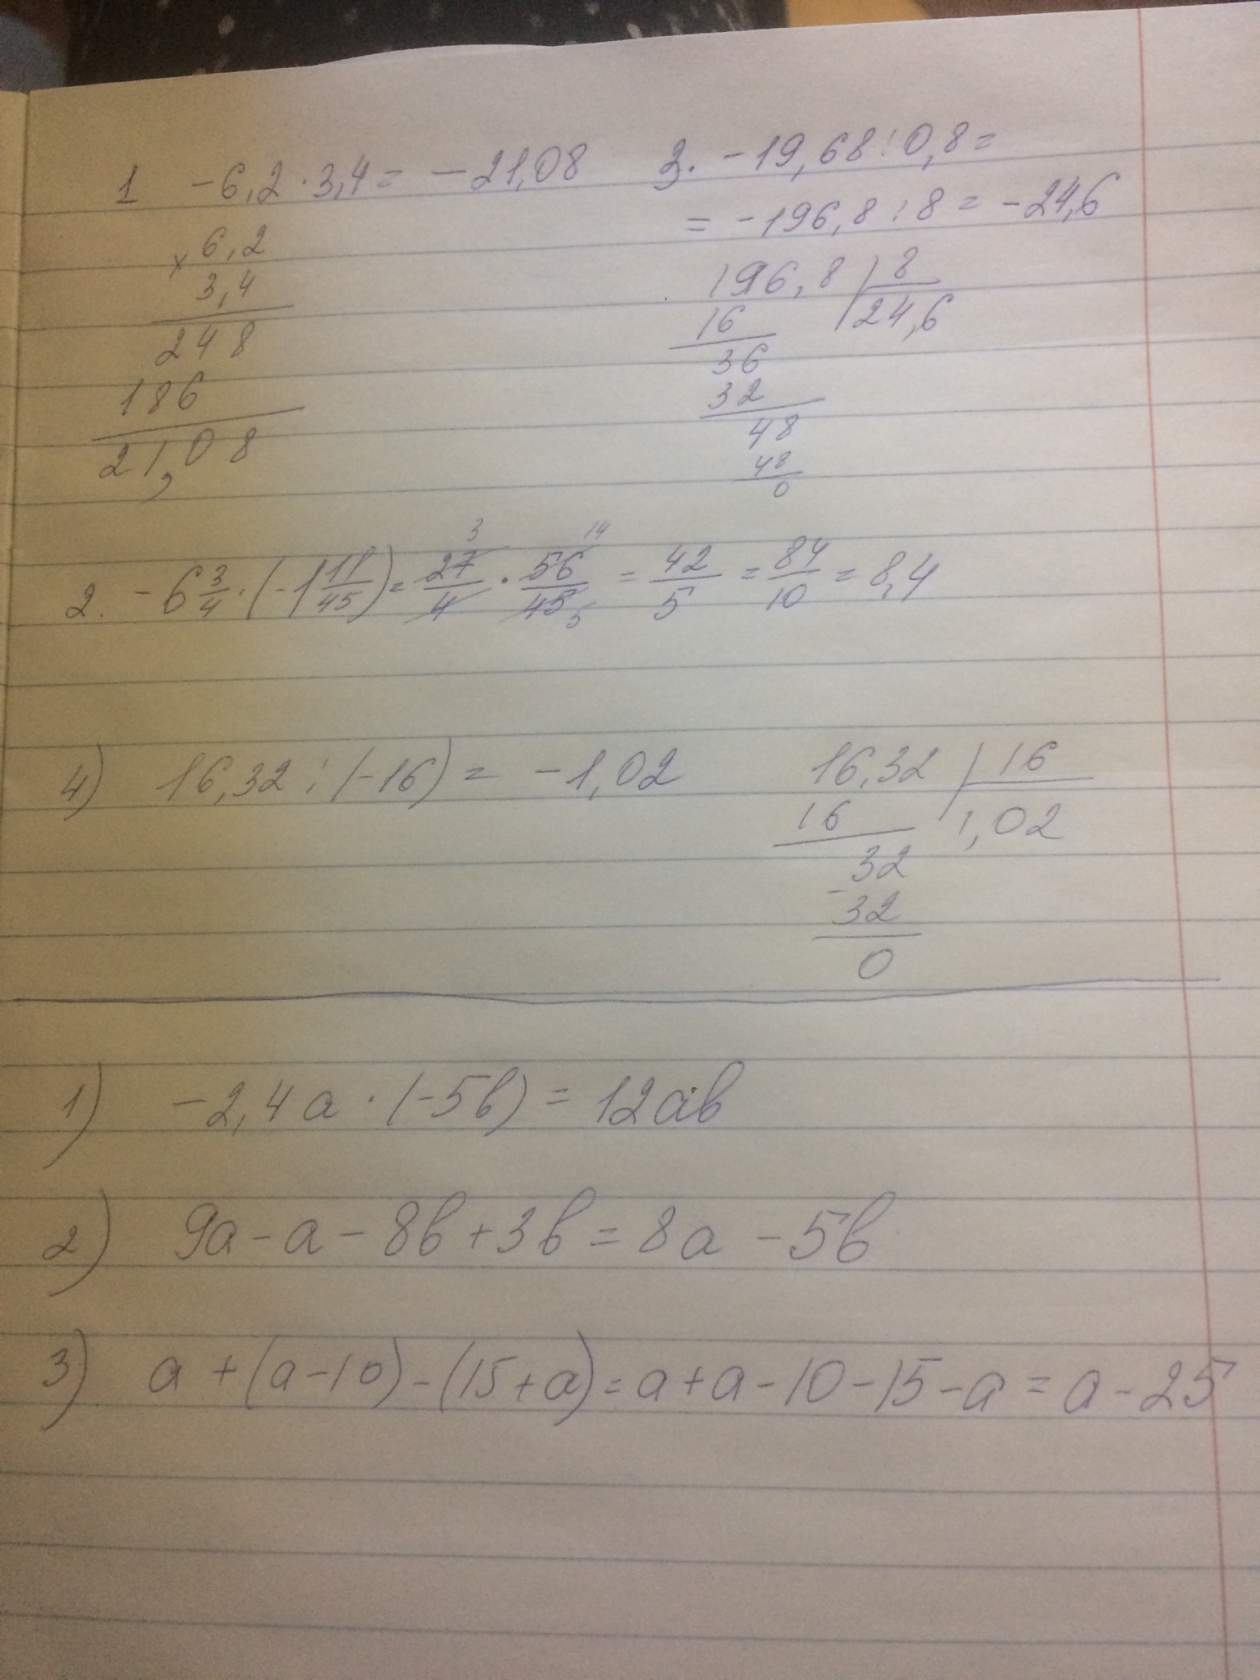 1 -6,2·3,4= -21,08
× 6,2
3,4
248
186
21,08
3. -19,68:0,8=
= -196,8:8= -24,6
196,8 | 8
16 24,6
36
32
48
48
0
2. -6 3/4 · (-1 11/45) = 27/4 · 56/45 = 42/5 = 84/10 = 8,4
3 14
5
4) 16,32:(-16)= -1,02
16,32 | 16
16 1,02
32
- 32
0
1) -2,4a·(-5b)=12ab
2) 9a-a-8b+3b=8a-5b
3) a+(a-10)-(15+a)=a+a-10-15-a=a-25